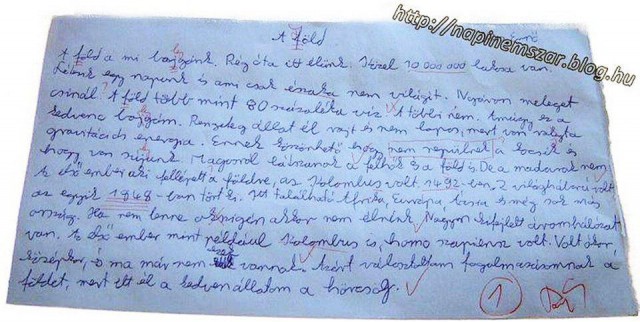 http://napinemszar.blog.hu
A föld
A föld a mi bojgónk. Rég óta itt élünk. Közel 10 000 000 lakosa van.
Létünk egy napunk és ami csak északa nem világit. Nyáron meleget
csinál. A föld több mint 80 százaléka víz. A többi nem. Amúgy ez a
kedvenc bojgóm. Rengeteg állat él rajt és nem lapos, mert van rajta
gravitációs energia. Ennek köszönhető hogy nem repülnek a kocsik és
hogy van súlyunk. Magosról látszanak a felhők és a föld is. De a madarak nem
Az első ember aki fellépett a földre, az Kolombus volt 1492-ben. 2 világháború volt
az egyik 1848-ban tört ki. Itt található Afrika, Európa, és még sok más
ország. Ha nem lenne oksigén akkor nem élnénk. Nagyon kifejlett áromhálózat
van. Az első ember mint például Kolombus is, homo szapiensz volt. Volt ókor,
középkor, ő ma már nem vannak. Azért választottam fogalmazásomnak a
földet, mert itt él a kedvenállatom a hörcsög.
1